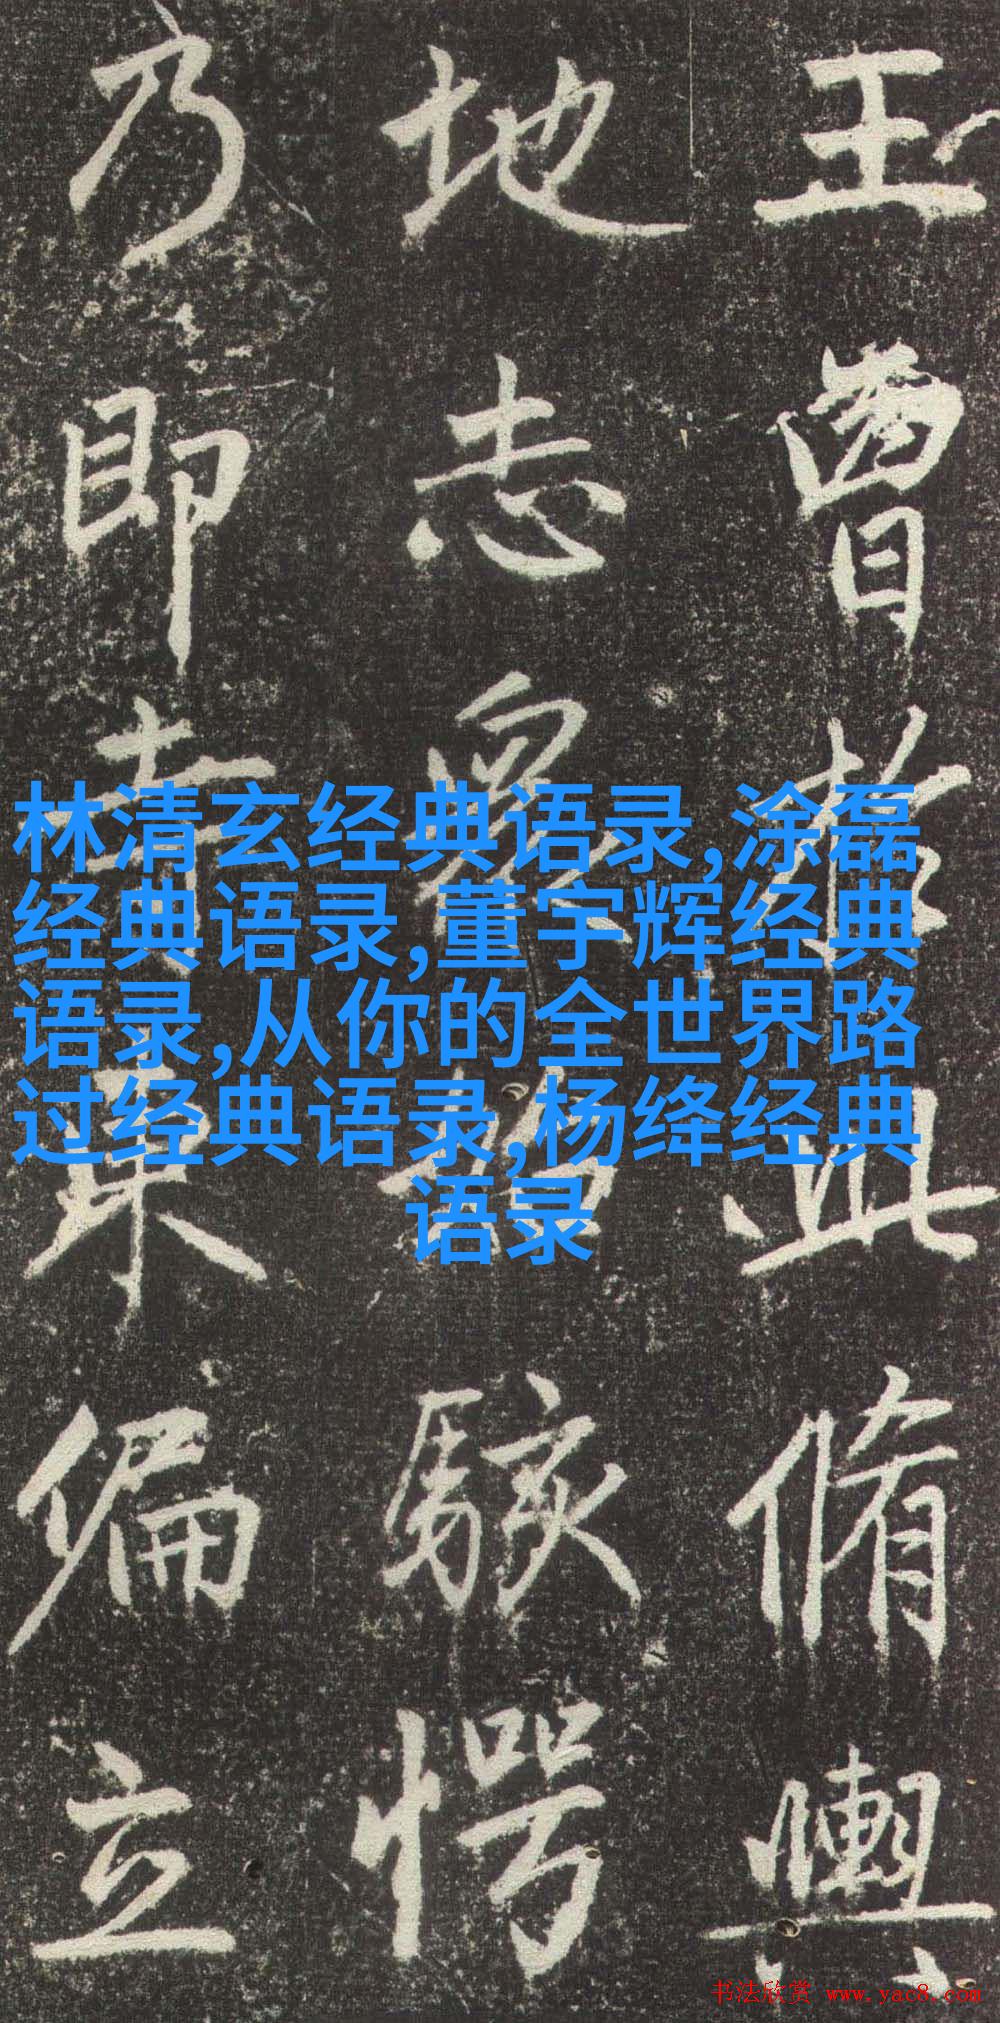 王曾於此脩輿
地志眾始駭愕
乃即寺東偏立
林清玄经典语录,涂磊
经典语录,董宇辉经典
语录,从你的全世界路
过经典语录,杨绛经典
语录
书法欣赏 www.yac8.com